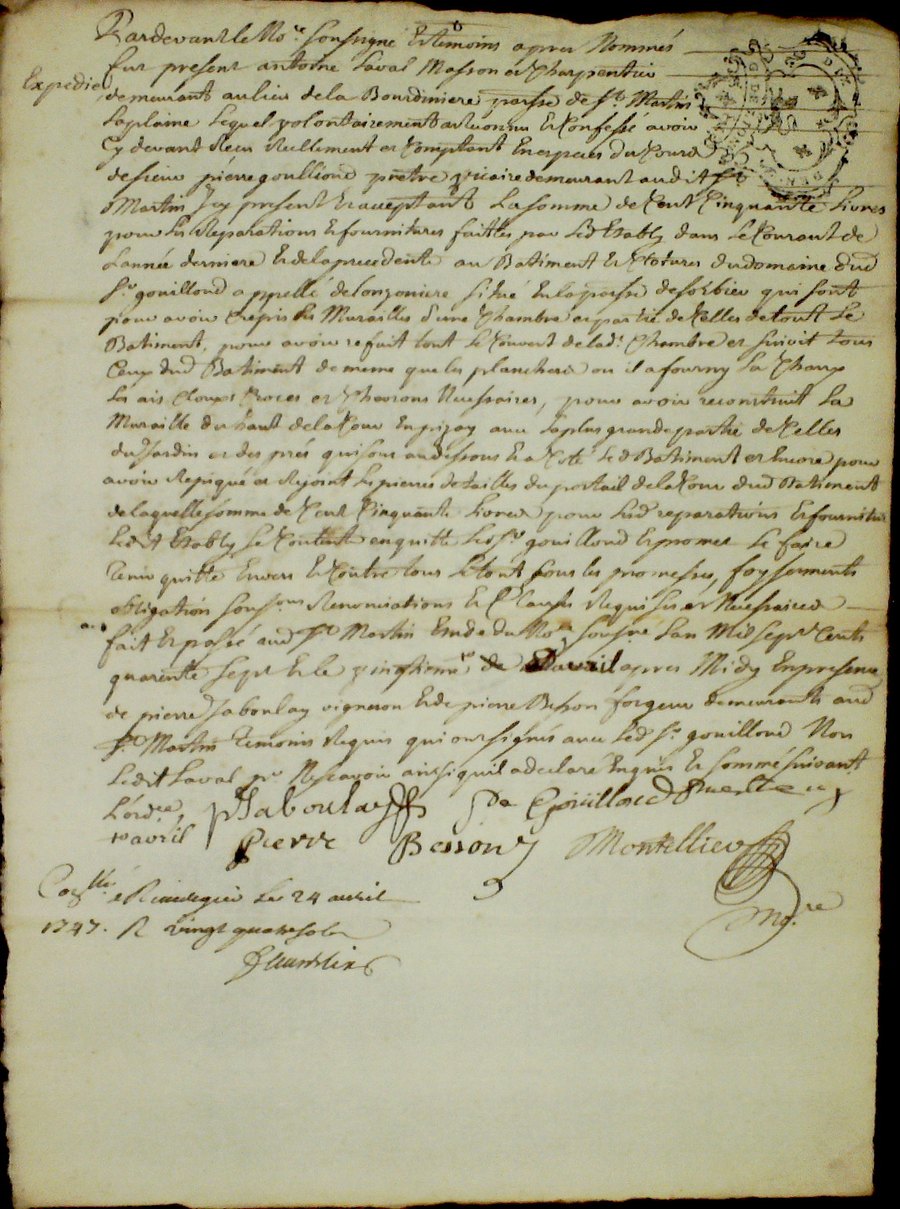 Pardevant le No.re soussigné Et temoins apres Nommés
fut present antoine Laval Masson et Charpentier
Expedié
demeurant au lieu de la Bourdiniere parsse de st. Martin
Laplaine Lequel volontairement a reconnu Et Confessé avoir
Cy devant Receu Reellement et Comptant En especes du Cours
de sieur pierre goullioud prêtre vicaire demeurant audit st
Martin Icy present Et acceptant La somme de Cent Cinquante Livres
pour Les Reparations Et fournitures faittes par Led Etably dans Le Courant de
Lannée derniere Et de la precedente au Batiment Et Clotures du domaine dud
sr. gouilloud appellé de longoniere situé En la parsse de sorbier qui sont
pour avoir Crepis Les Murailles d'une Chambre et partie de Celles de tout Le
Batiment, pour avoir refait tout Le Couvert de lad. Chambre et suivit tous
Ceux dud Batiment de meme que les planchers ou il a fourny La Chaux
Les ais Cloux et Chevrons Necessaires, pour avoir reconstruit La
Muraille du haut de la Cour En pizay avec La plus grande partie de Celles
du Jardin et des prés qui sont au dessous Et a Coté Led Batiment et Encore pour
avoir Repiqué et Rejoint Les pierres de tailles du portail de la Cour dud Batiment
de laquelle somme de Cent Cinquante Livres pour Lesd reparations Et fournitures
Ledit Etably Se Contente en quitte Led sr. gouilloud Et promet Le faire
tenir quitte Envers Et Contre tous Le tout sous les promesses, foy serments
obligations soumons Renonciations Et Clauses Requises et Necessaires
fait Et passé aud st Martin Etude du No.re soussné Lan Mil sept Cents
quarente sept Et le vingtieme davril apres Midy En presence
de pierre Jaboulay vigneron Et de pierre Besson forgeur demeurants aud
st Martin temoins Requis qui ont signés avec Led sr. gouilloud Non
Ledit Laval pr. Ne scavoir ainsi quil a declaré Enquis Et sommé suivant
Lord.ce
10 avril
p Jaboulay
Goüilloud
Pierre Besson
Montellier
No.re
Con.llé a Riverie Le 24 avril
1747. R vingt quatre sols